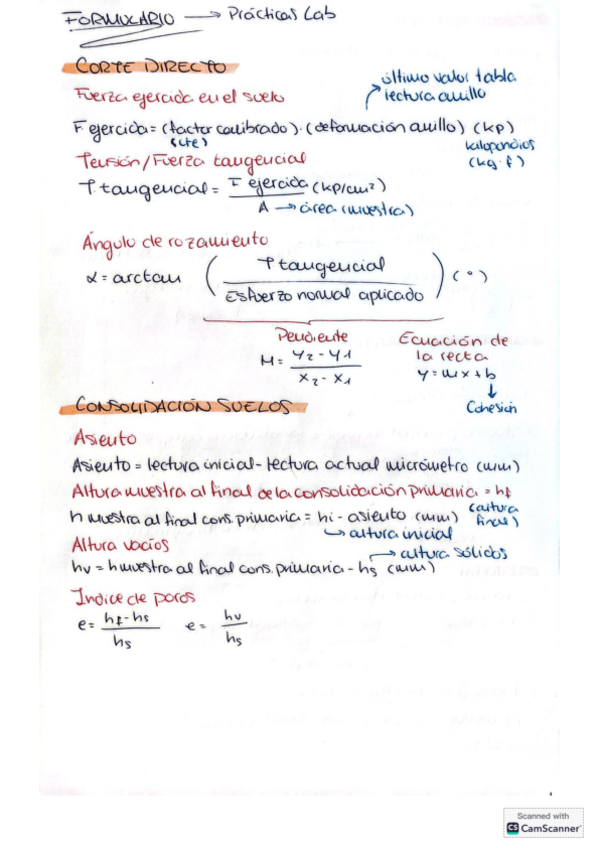 FORMULARIO → Prácticas Lab
CORTE DIRECTO
Fuerza ejercida en el suelo
último valor tabla
lectura anillo
F ejercida = (factor calibrado) · (deformación anillo) (kp)
(cte)
kilopondios
(kg·f)
Tensión/Fuerza tangencial
T tangencial = F ejercida / A (kp/cm²)
A → área (muestra)
Ángulo de rozamiento
α = arctan ( T tangencial / Esfuerzo normal aplicado ) (°)
Pendiente
M = y2 - y1 / x2 - x1
Ecuación de
la recta
y = mx + b
↓
Cohesión
CONSOLIDACIÓN SUELOS
Asiento
Asiento = lectura inicial - lectura actual micrómetro (mm)
Altura muestra al final de la consolidación primaria = hf
(altura
final)
h muestra al final cons. primaria = hi - asiento (mm)
→ altura inicial
Altura vacíos
→ altura sólidos
hv = h muestra al final cons. primaria - hs (mm)
Índice de poros
e = hf - hs / hs e = hv / hs
Scanned with
CS CamScanner